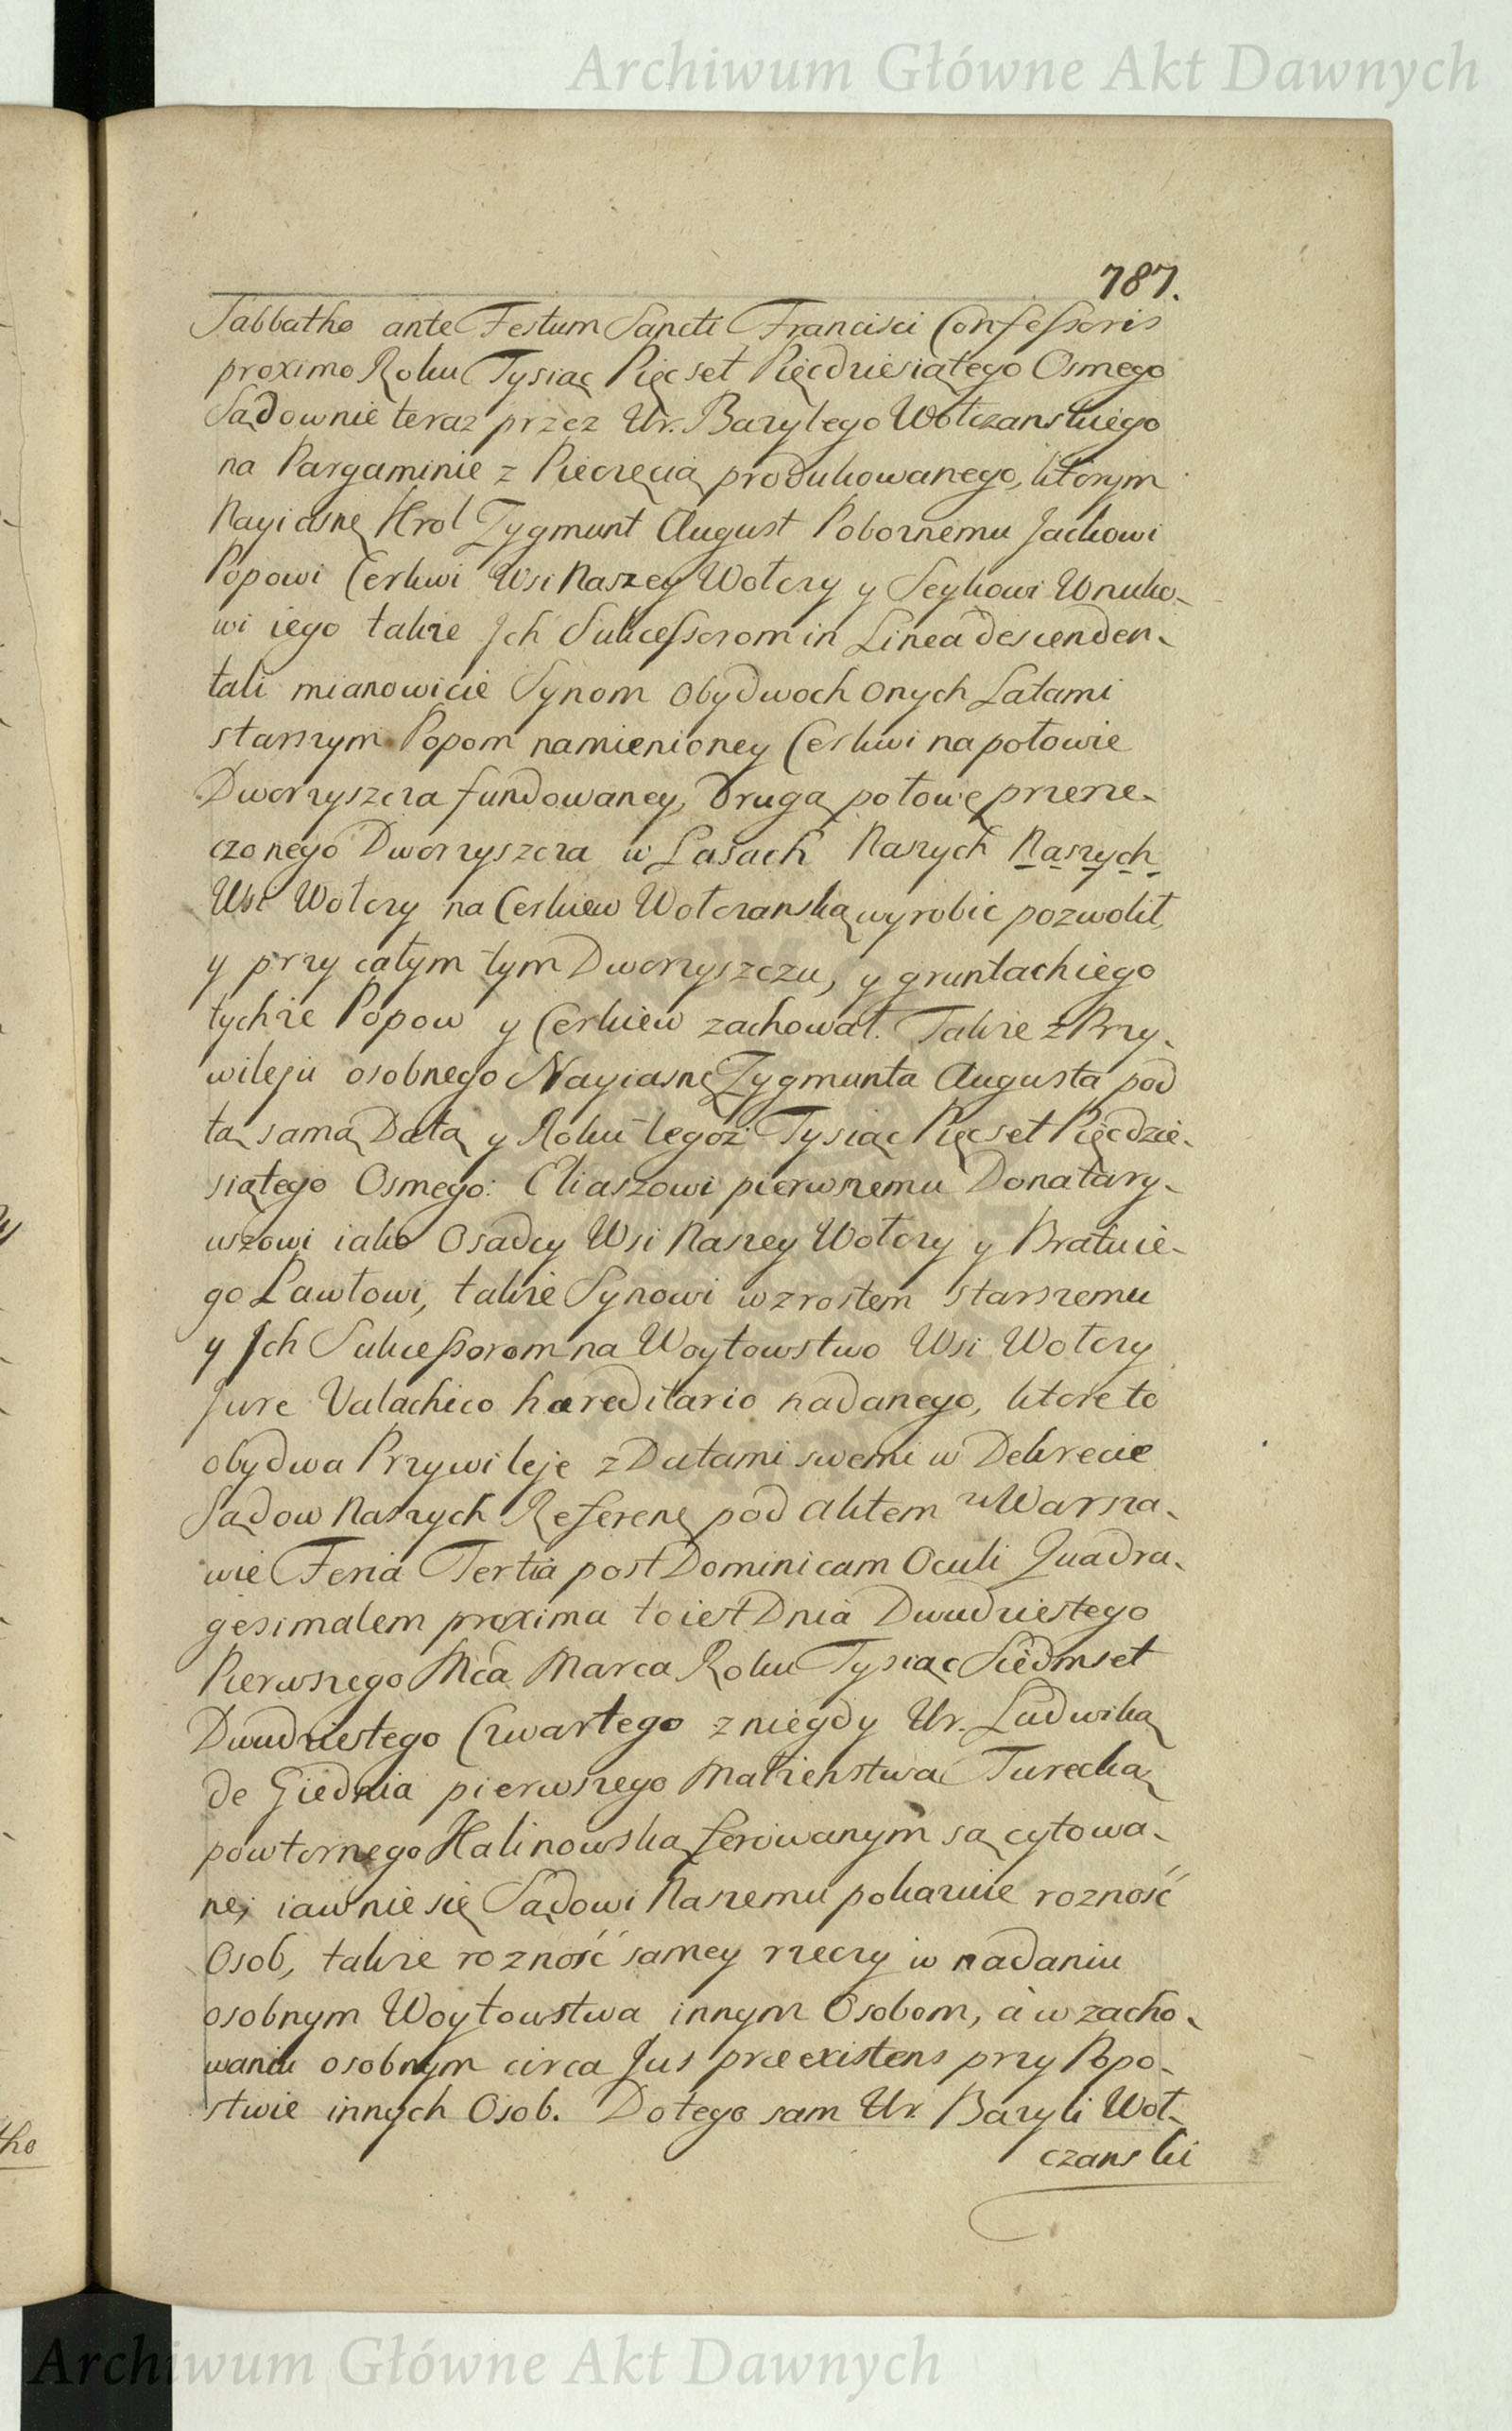 Archiwum Główne Akt Dawnych
787.
Sabbatho ante Festum Sancti Francisci Confessoris
proximo Roku Tysiąc Pięcset Pięcdziesiątego Osmego
Sądownie teraz przez Ur. Bazylego Wołczanskiego
na Pargaminie z Pieczęcią produkowanego, ktorym
Nayiasnę Krol Zygmunt August Pobornemu Jackowi
Popowi Cerkwi Wsi Naszey Wołczy y Seykowi Wnuko-
wi iego takze Jch Sukcessorom in Linea descenden-
tali mianowicie Synom obydwoch onych Latami
starszym Popom namienioney Cerkwi na połowie
Dworzyszcza fundowaney, drugą połowę przerze-
czonego Dworzyszcza w Lasach Naszych Naszych
Wsi Wołczy na Cerkiew Wołczanską wyrobic pozwolił,
y przy całym tym Dworzyszczu, y gruntach iego
tychze Popow y Cerkiew zachował. Takze z Przy-
wileju osobnego Nayiasnę Zygmunta Augusta pod
tą samą Datą y Roku tegoz Tysiąc Pięcset Pięcdzie-
siątego Osmego: Eliaszowi pierwszemu Donatary-
uszowi iako Osadcy Wsi Naszey Wołczy y Bratu ie-
go Pawłowi, takze Synowi wzrostem starszemu
y Jch Sukcessorom na Woytowstwo Wsi Wołczy
Jure Valachico haereditario nadanego, ktore to
obydwa Przywileje z Datami swemi w Dekrecie
Sądow Naszych Referenę pod aktem w Warsza-
wie Feria Tertia post Dominicam Oculi Quadra-
gesimalem proxima to iest Dnia Dwudziestego
Pierwszego Mca Marca Roku Tysiąc Siedmset
Dwudziestego Czwartego z niegdy Ur. Ludwiką
de Giednia pierwszego Małzenstwa Turecką
powtornego Kalinowską ferowanym są cytowa-
ne; iawnie się Sądowi Naszemu pokazuie roznosć
Osob, takze roznosć samey rzeczy w nadaniu
osobnym Woytowstwa innym Osobom, a w zacho-
waniu osobnym circa Jus praeexistens przy Popo-
stwie innych Osob. Do tego sam Ur. Bazyli Woł-
czanski
tho
Archiwum Główne Akt Dawnych